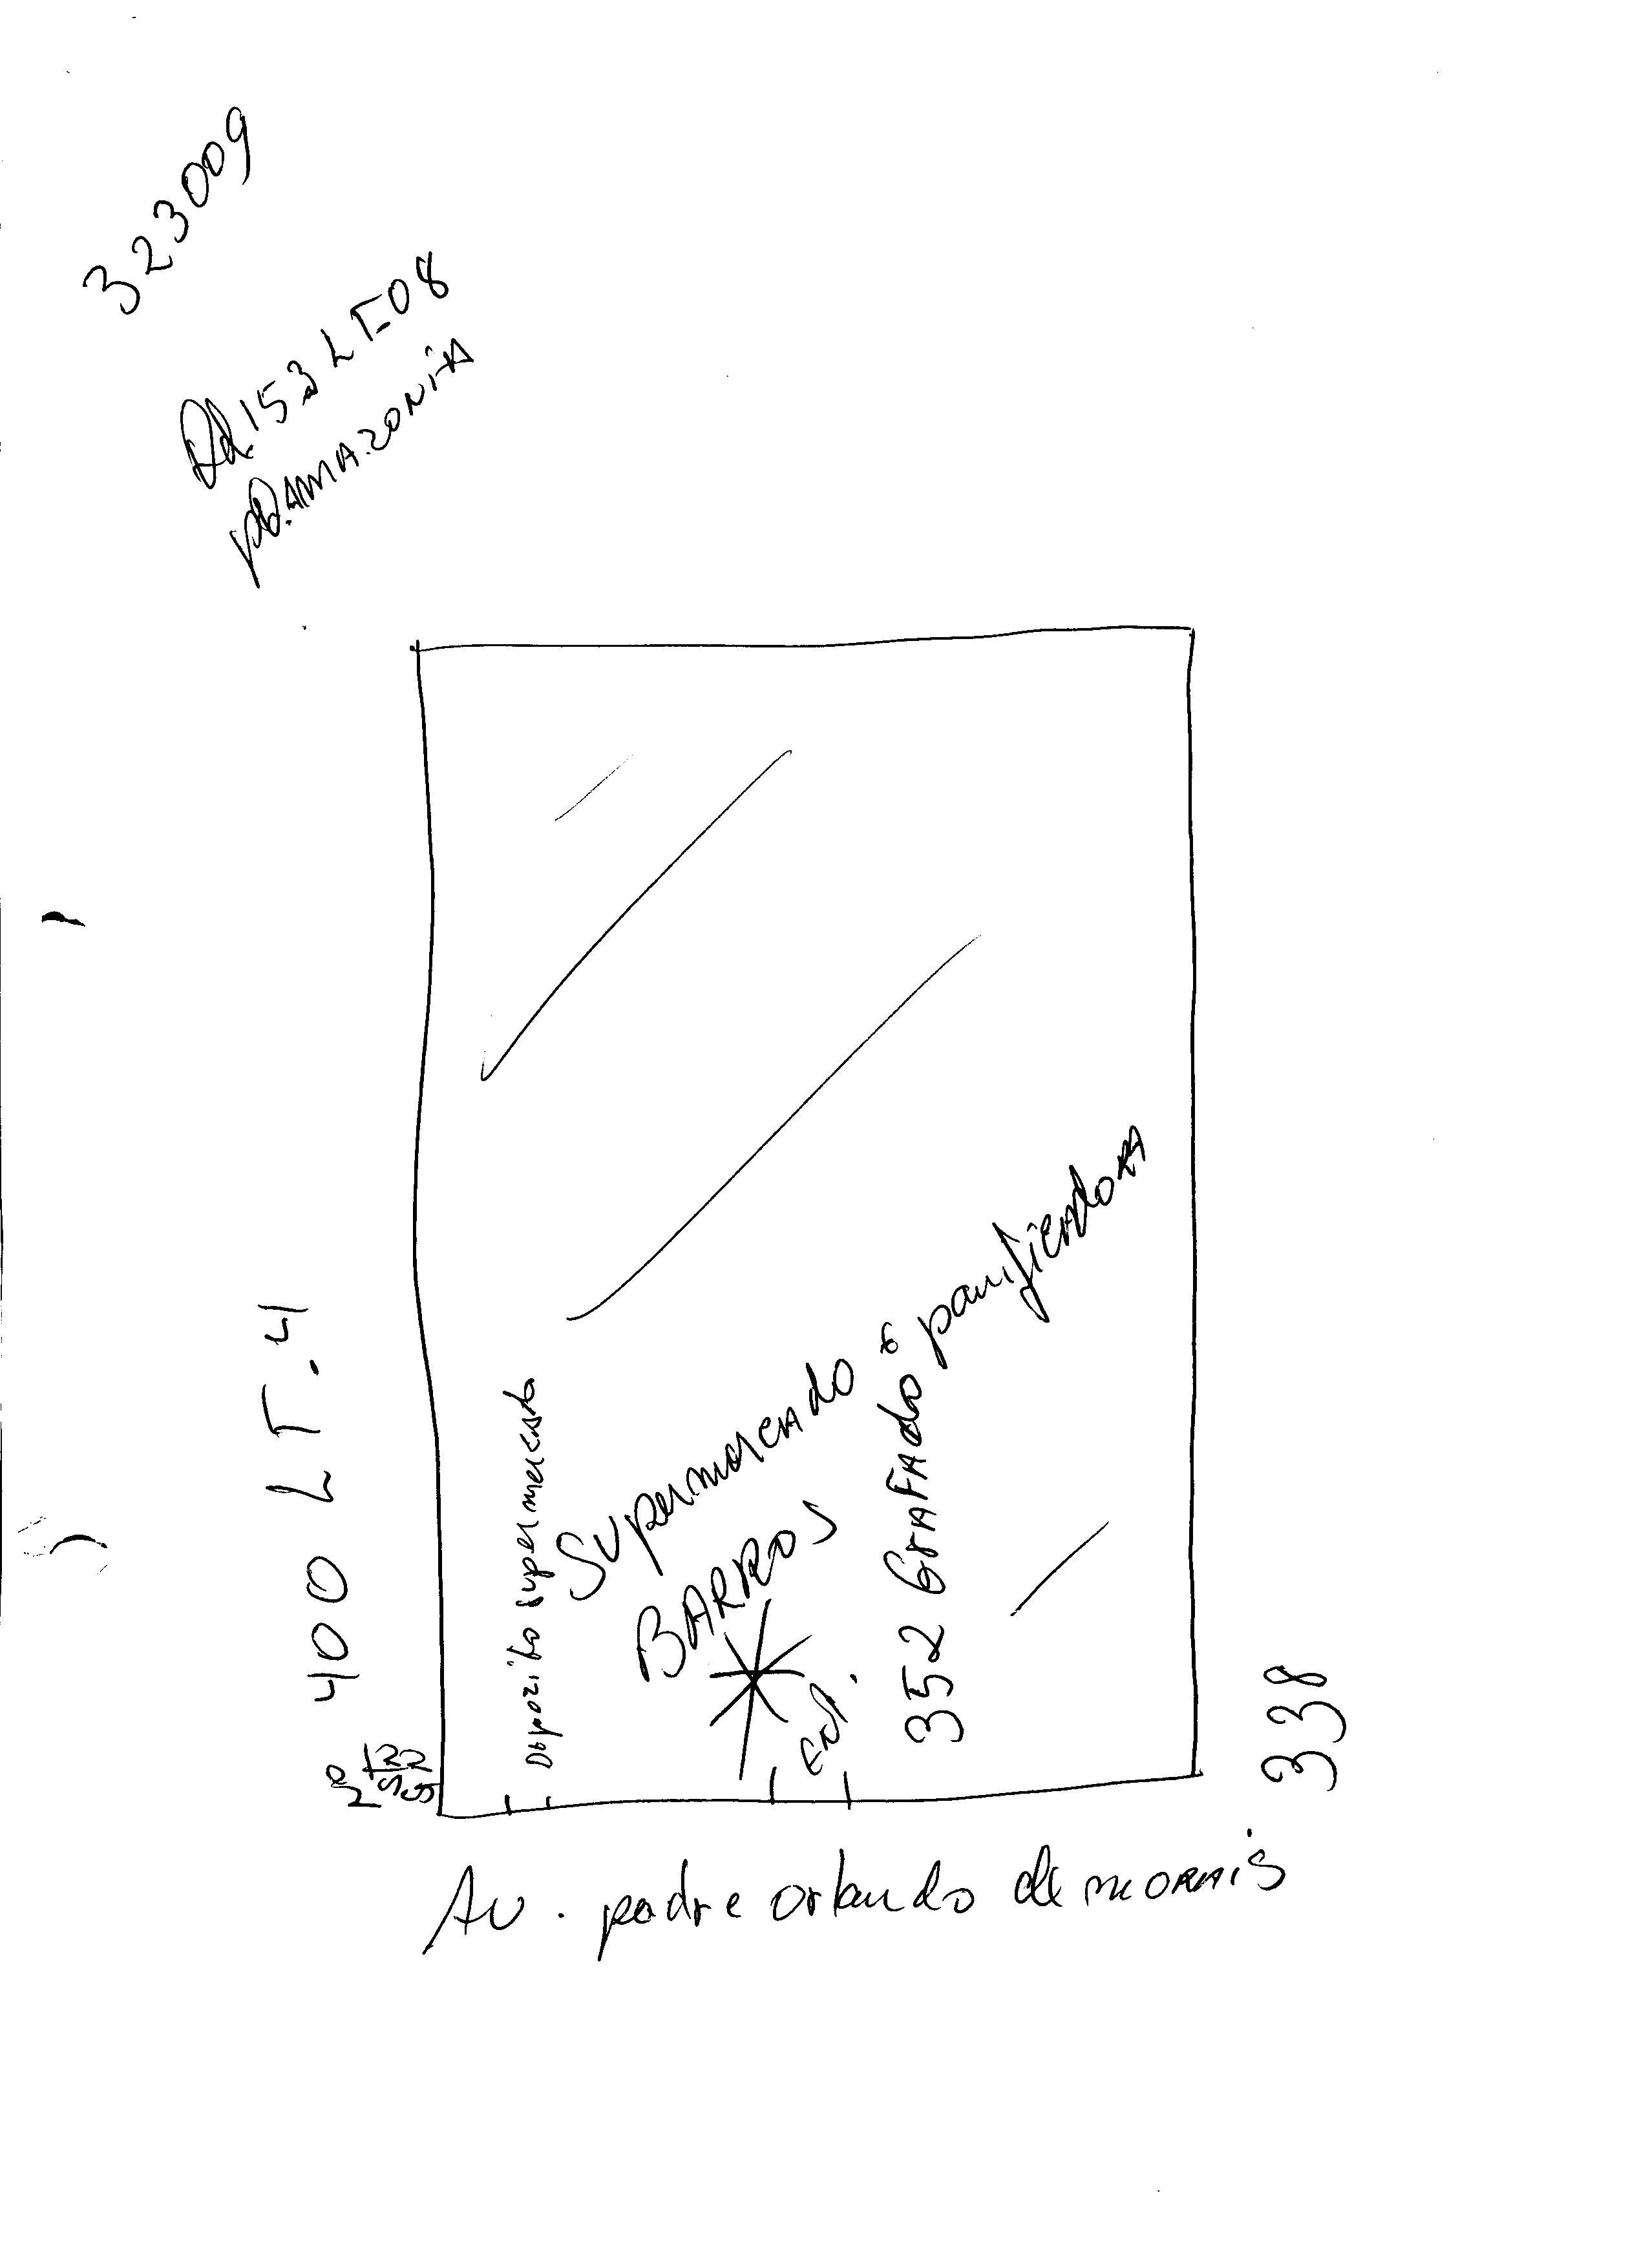 323009
Qd.153 LT-08
pQ.AMAZONiA
400 LT.4
Depozito supermercado
Supermercado e panificadora
BARROS
Ent.
352 GrAFAdo
338
Av. padre orlando de morais